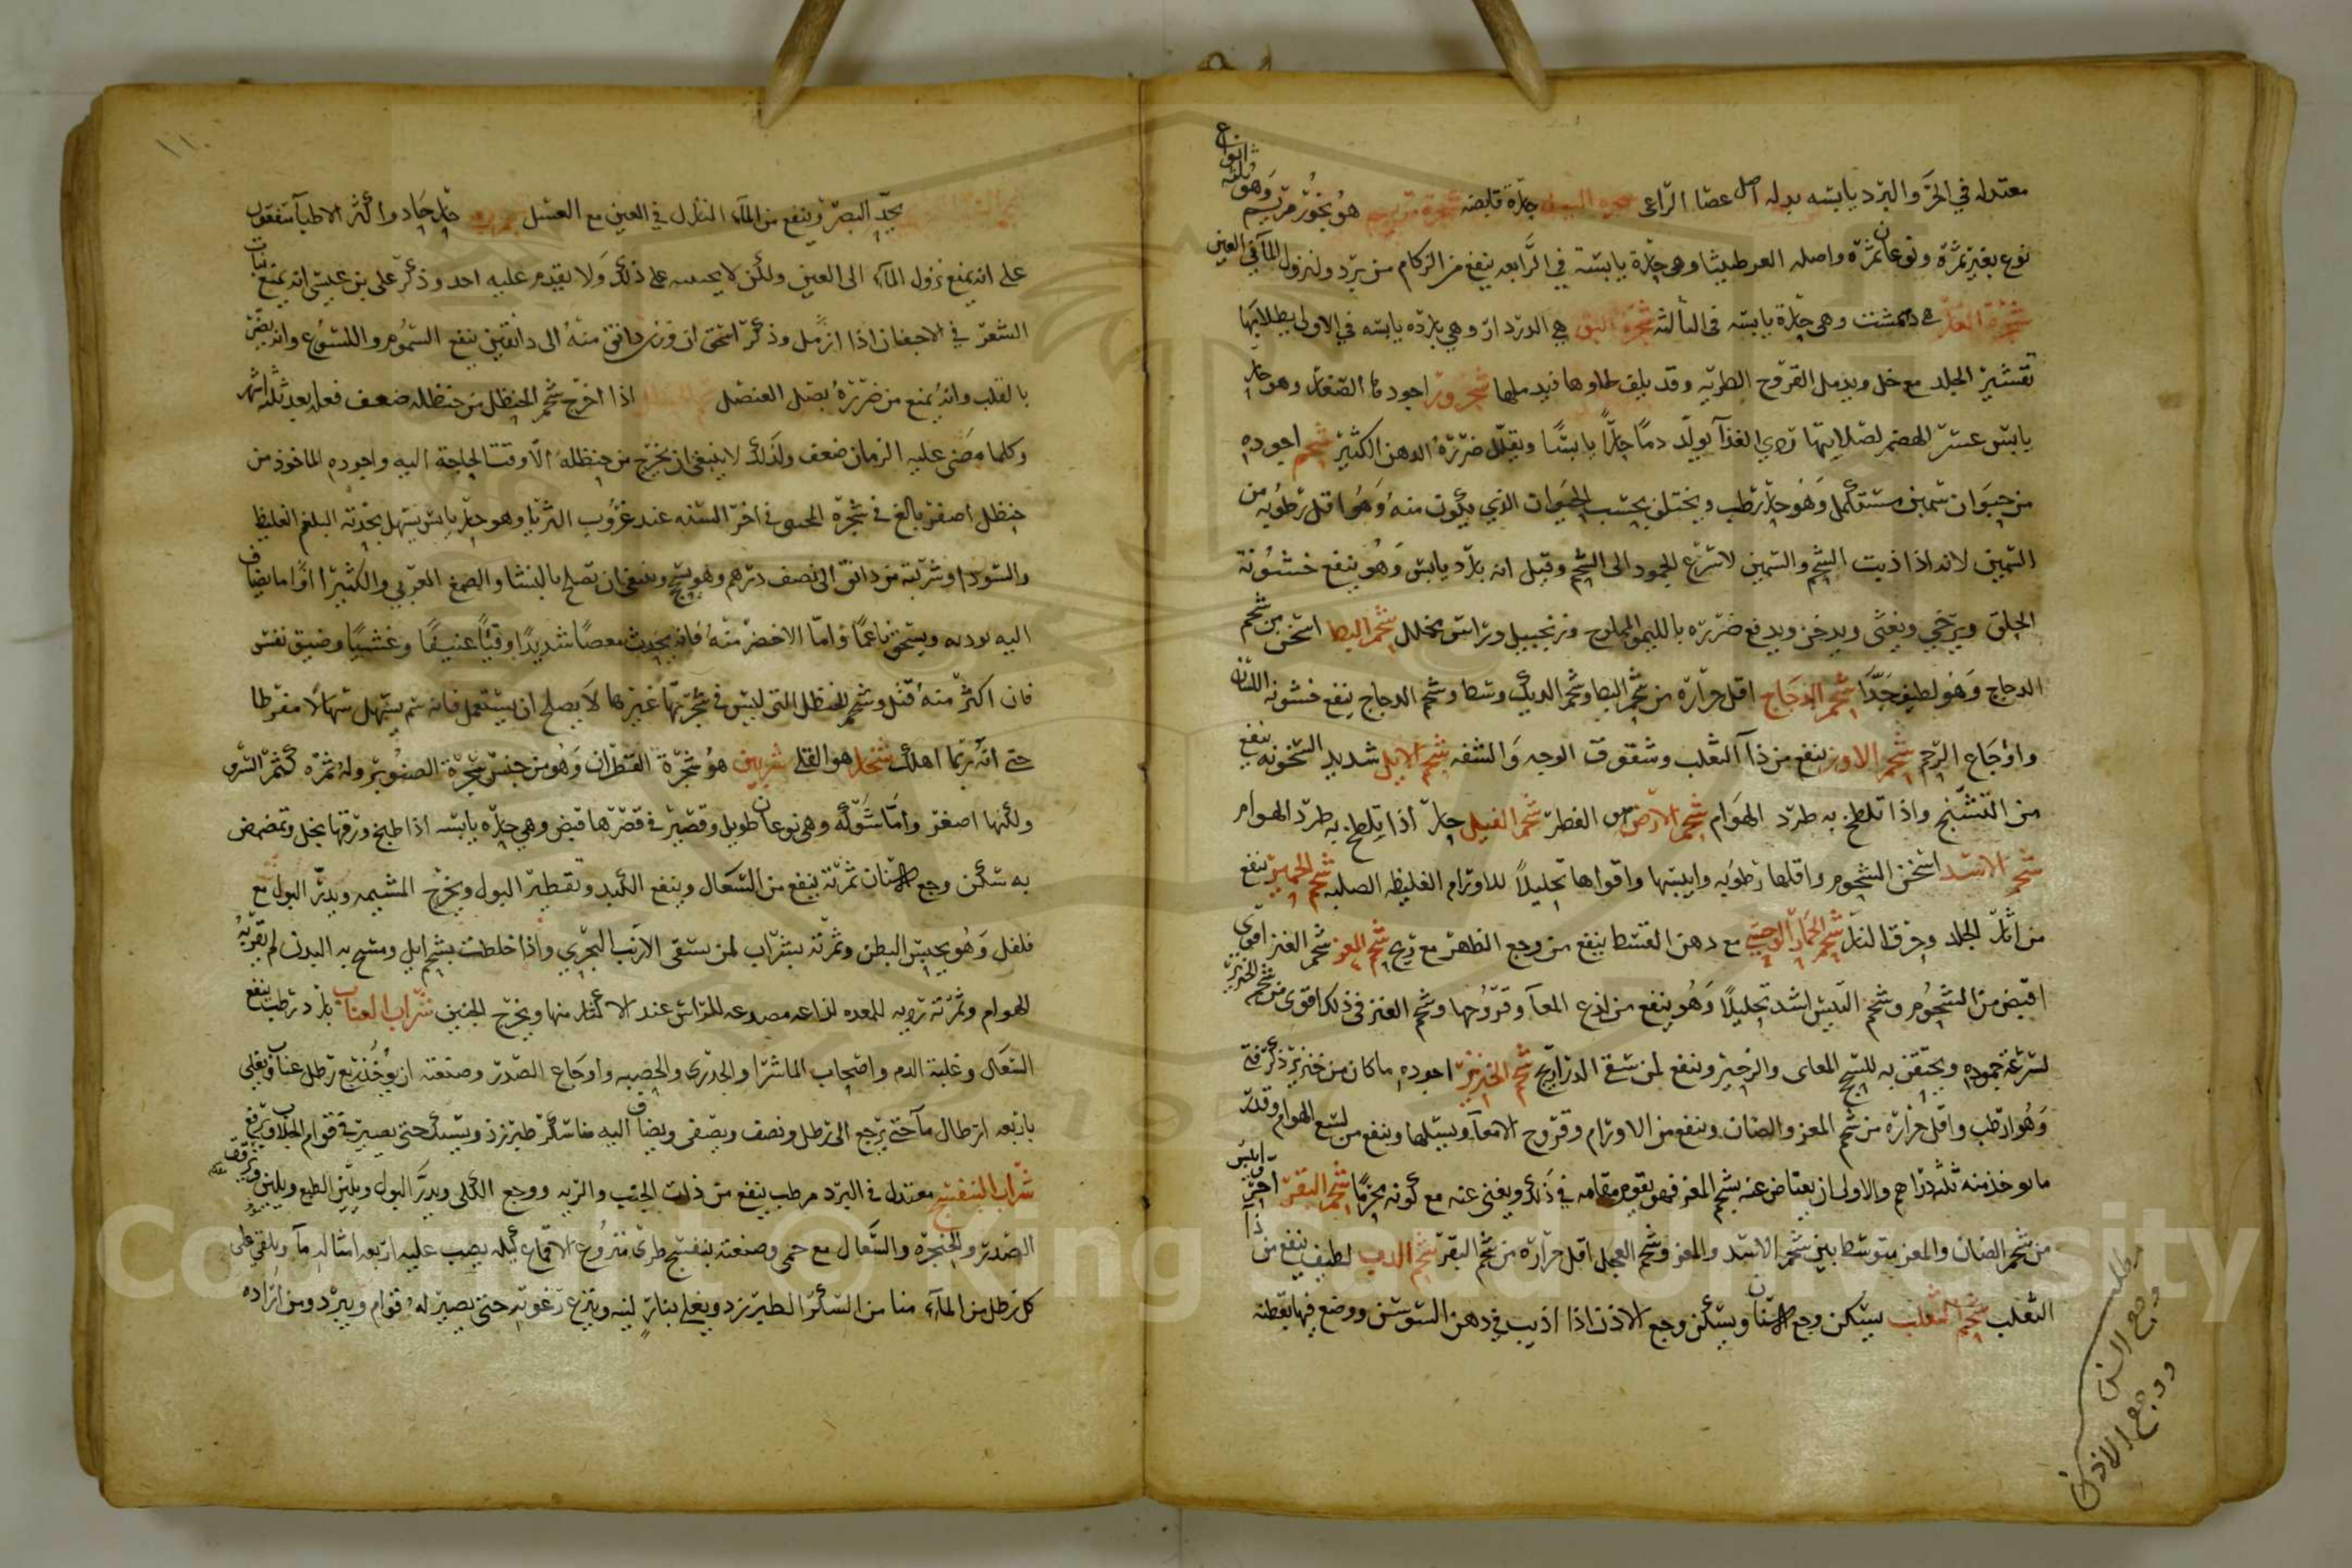 معتدله في الحر والبرد يابسه بدله اصل عصا الراعى حارة قابضه شجرة مريم هو بخور مريم وهو ثلثه انواع
نوع بغير ثمرة ونوعان ثمرة واصله العرطنيثا وهى حارة يابسة في الرابعه ينفع من الزكام من برد ولنزول الماء في العين
شجرة هي دمشت وهى حارة يابسه فى الثالثه شجرة البق هي الدردار وهي بارده يابسه في الاولى يطلا بها
تقشير الجلد مع خل ويدمل القروح الطريه وقد يلف لحاوها فيدملها اجوده الصغار وهو حار
يابس عسر الهضم لصلابتها ردي الغذآ يولد دما حارا يابسا ويقلل ضررة الدهن الكثير شحم اجوده
من حيوان سمين مستكمل وهو حار رطب ويختلف بحسب الحيوان الذي يكون منه وهو اقل رطوبه من
السمين لانه اذا اذيب الشحم والسمين لاسرع الجمود الى الشحم وقيل انه بارد يابس وهو ينفع خشونة
الحلق ويرخي ويغثى ويدخن ويدفع ضرره بالليمو المملوح وزنجبيل وراس مخلل شحم البط اسخن من شحم
الدجاج وهو لطيف جدا شحم الدجاج اقل حرارة من شحم البط وشحم الديك وسط وشحم الدجاج ينفع خشونه اللسان
واوجاع الرحم شحم الاوز ينفع من دآ الثعلب وشقوق الوجه والشفه شحم الايل شديد السخونه ينفع
من التشنج واذا تلطخ به طرد الهوام شحم الارض هو الفطر شحم الفيل حار اذا تلطخ به طرد الهوام
شحم الاسد اسخن الشحوم واقلها رطوبه وايبسها واقواها تحليلا للاورام الغليظه الصلبه شحم الحمير ينفع
من اثار الجلد وحرق النار شحم الحمار الوحشي مع دهن القسط ينفع من وجع الظهر مع ريح شحم المعز شحم العنز اقوى
اقبض من الشحوم وشحم التيس اشد تحليلا وهو ينفع من لذع المعآ وقروحها وشحم العنز في ذلك اقوى من شحم الخنزير
لسرعة جموده ويحتقن به للسحج المعاى والزحير وينفع لمن سقى الذراريح شحم الخنزير اجوده ما كان من خنزير ذكر فتى
وهو ارطب واقل حرارة من شحم المعز والضان وينفع من الاورام وقروح الامعآ ويسيلها وينفع من لسع الهوام وقدر
ما يوخذ منه ثلثه دراهم والاولى ان يعتاض عنه بشحم المعز فهو يقوم مقامه في ذلك ويغنى عنه مع كونه محرما شحم البقر احر ايبس
من شحم الضان والمعز متوسط بين شحم الاسد والمعز وشحم العجل اقل حرارة من شحم البقر شحم الدب لطيف ينفع من دآ
الثعلب شحم الثعلب يسكن وجع الاسنان ويسكن وجع الاذن اذا اذيب في دهن السوسن ووضع فيها بقطنه
مطلب
وجع السن
ووجع الاذن
١١٠
يحد البصر وينفع من المآء النازل في العين مع العسل حار حاد واكثر الاطبآ متفقون
على انه يمنع نزول المآء الى العين ولكن لا يحسه على ذلك ولا يقدم عليه احد وذكر على بن عيسى انه يمنع نبات
الشعر في الاجفان اذا ازمل وذكر اسحق ان وزن دانق منه الى دانقين ينفع السموم واللسوع وانه يضر
بالقلب وانه يمنع من ضرره بصل العنصل شحم الحنظل اذا اخرج شحم الحنظل من حنظله ضعف فعله بعد ثلثه اشهر
وكلما مضى عليه الزمان ضعف ولذلك لا ينبغى ان يخرج من حنظله الا وقت الحاجة اليه واجوده الماخوذ من
حنظل اصفر بالغ في شجرة المجنى في اخر السنه عند غروب الثريا وهو حار يابس يسهل بحدته البلغم الغليظ
والسودا وشربته من دانق الى نصف درهم وهو يسحج وينبغى ان يصلح بالنشا والصمغ العربي والكثيرا اوا ما يضاف
اليه لوديه ويسحق ناعما واما الاخضر منه فانه يحدث مغصا شديدا وقيئا عنيفا وغشيا وضيق نفس
فان اكثر منه قتل وشحم الحنظل التى ليس في شجرتها غيرها لا يصلح ان يستعمل فانه سم يسهل اسهالا مفرطا
حتى انه ربما اهلك شخار هو القلى شربين هو شجرة القطران وهو من جنس شجرة الصنوبر وله ثمره كثمر السرو
ولكنها اصغر واما شوكه وهى نوعان طويل وقصير في قصرها قبض وهى حاره يابسه اذا طبخ ورقها بخل وتمضمض
به سكن وجع الاسنان ثمرته ينفع من السعال وينفع الكبد وتقطير البول ويخرج المشيمه ويدر البول مع
فلفل وهو يحبس البطن وثمرته بشراب لمن سقى الارنب البحري واذا خلطت بشحم ايل ومسح به البدن لم يقربه
الهوام وثمرته رديه للمعده لذاعه مصدعه للراس عند الاكثار منها ويخرج الجنين شراب العناب بارد رطب ينفع
السعال وغلبة الدم واصحاب الماشرا والجدرى والحصبه واوجاع الصدر وصنعته ان يؤخذ ربع رطل عناب ويغلى
باربعه ارطال مآ حتى يرجع الى رطل ونصف ويصفى ويضاف اليه منا سكر طبرزد ويسبك حتى يصير في قوام الجلاب ويرفع
شراب البنفسج معتدل في البرد مرطب ينفع من ذات الجنب والريه ووجع الكلى ويدر البول ويلين الطبع ويلين
الصدر والحنجره والسعال مع حمى وصنعته بنفسج طرى منزوع الاقماع كيله يصب عليه اربعه امثاله مآ ويلقى على
كل رطل من المآء منا من السكر الطبرزد ويغلى بنار لينه وينزع رغوته حتى يصير له قوام ويبرد ومن اراده